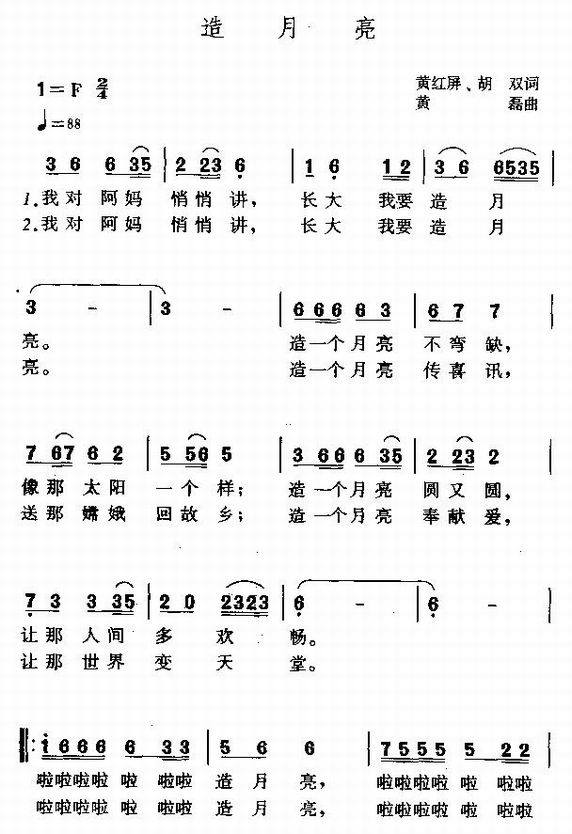 造月亮
1=F 2/4
黄红屏、胡双词
黄磊曲
♩=88
3 6 6 35 | 2 23 6 | 1 6 12 | 3 6 6535 |
1.我对阿妈悄悄讲，长大我要造月
2.我对阿妈悄悄讲，长大我要造月
3 - | 3 - | 666 6 3 | 6 7 7 |
亮。造一个月亮不弯缺，
亮。造一个月亮传喜讯，
7 67 6 2 | 5 56 5 | 3 66 6 35 | 2 23 2 |
像那太阳一个样；造一个月亮圆又圆，
送那嫦娥回故乡；造一个月亮奉献爱，
7 3 3 35 | 2 0 2323 | 6 - | 6 - |
让那人间多欢畅。
让那世界变天堂。
‖: 1666 6 33 | 5 6 6 | 7555 5 22 |
啦啦啦啦啦啦啦造月亮，啦啦啦啦啦啦啦
啦啦啦啦啦啦啦造月亮，啦啦啦啦啦啦啦